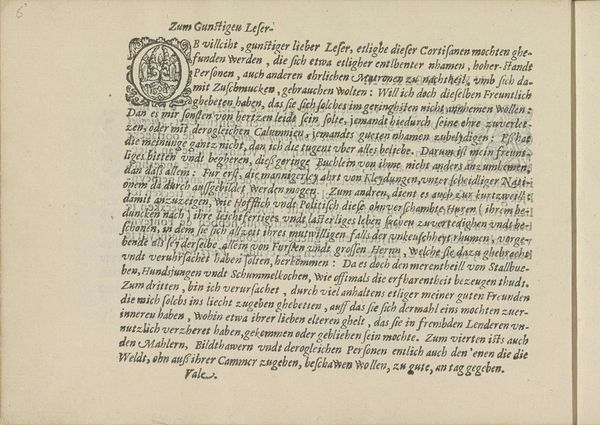 6
Zum Gunstigen Leser.
OB villciht, gunstiger lieber Leser, etlighe dieser Cortisanen mochten ghe-
funden werden, die sich etwa etligher entlhenter nhamen, hoher-standt
Personen, auch anderen ehrlichen Matronen zu nachtheil, vnnb sich da-
mit Zuschmucken, gebrauchen wolten: Will ich doch dieselben Freuntlich
ghebeten haben, das sie sich solches im geringhsten nicht annhemen wollen:
Dan es mir sonsten von hertzen leidt sein solte, jemandt hiedurch seine ohre zuverlet-
zen, oder mit derogleichen Calumnien, jemandts gueten nhamen zubelydigen: Eß hat
die meinunge gantz nicht, dan ich die tugent vber alles beliebe. Darum ist mein freunt-
liges bieten vndt begheren, dieß geringe Buchlein von ihme nicht anders anzumhemen,
dan daß allein: Fur erst, die mannigerley ahrt von Kleydungen, vnter scheidliger Nati-
onem da durch aufgebildet Werden mogen. Zum andren, dient es auch zur kurtzweil:
damit anzuzeigen, wie Hofflich vndt Politisch diese ohnverschambte Huren (ihrem be-
duncken nach) ihre leichtfertiges vndt lasterliges leben wissen zuvertedighen vndt be-
schonen, in dem sie sich allzeit ihres mutwilligen falls der vnkeuschheyt rhumen, vorge-
bende als sey derselbe allein von Fursten vndt grossen Herrn, welche sie dazu ghebracht
vndt veruhrsachet haben solten, herkommen: Da es doch den merentheill von Stallbue-
ben, Hundsjungen vndt Schummelkochen, wie offimals die erfharentheit bezeugen thudt.
Zum dritten, bin ich verursachet, durch viel anhaltens etliger meiner guten Freunden
die mich solchs ins liecht zugeben ghebetten, auff das sie sich dermahl eins mochten zuer-
inneren haben, wohin etwa ihrer lieben elteren ghelt, das sie in frembden Lenderen vn-
nutzlich verzheret haben, gekommen oder gebliehen sein mochte. Zum vierten ists auch
den Mahlern, Bildthawern vndt derogleichen Personen entlich auch den'enen die die
Weldt, ohn auß ihrer Cammer zugehen, beschawen wollen, zu gute, an tag gegeben.
Vale.